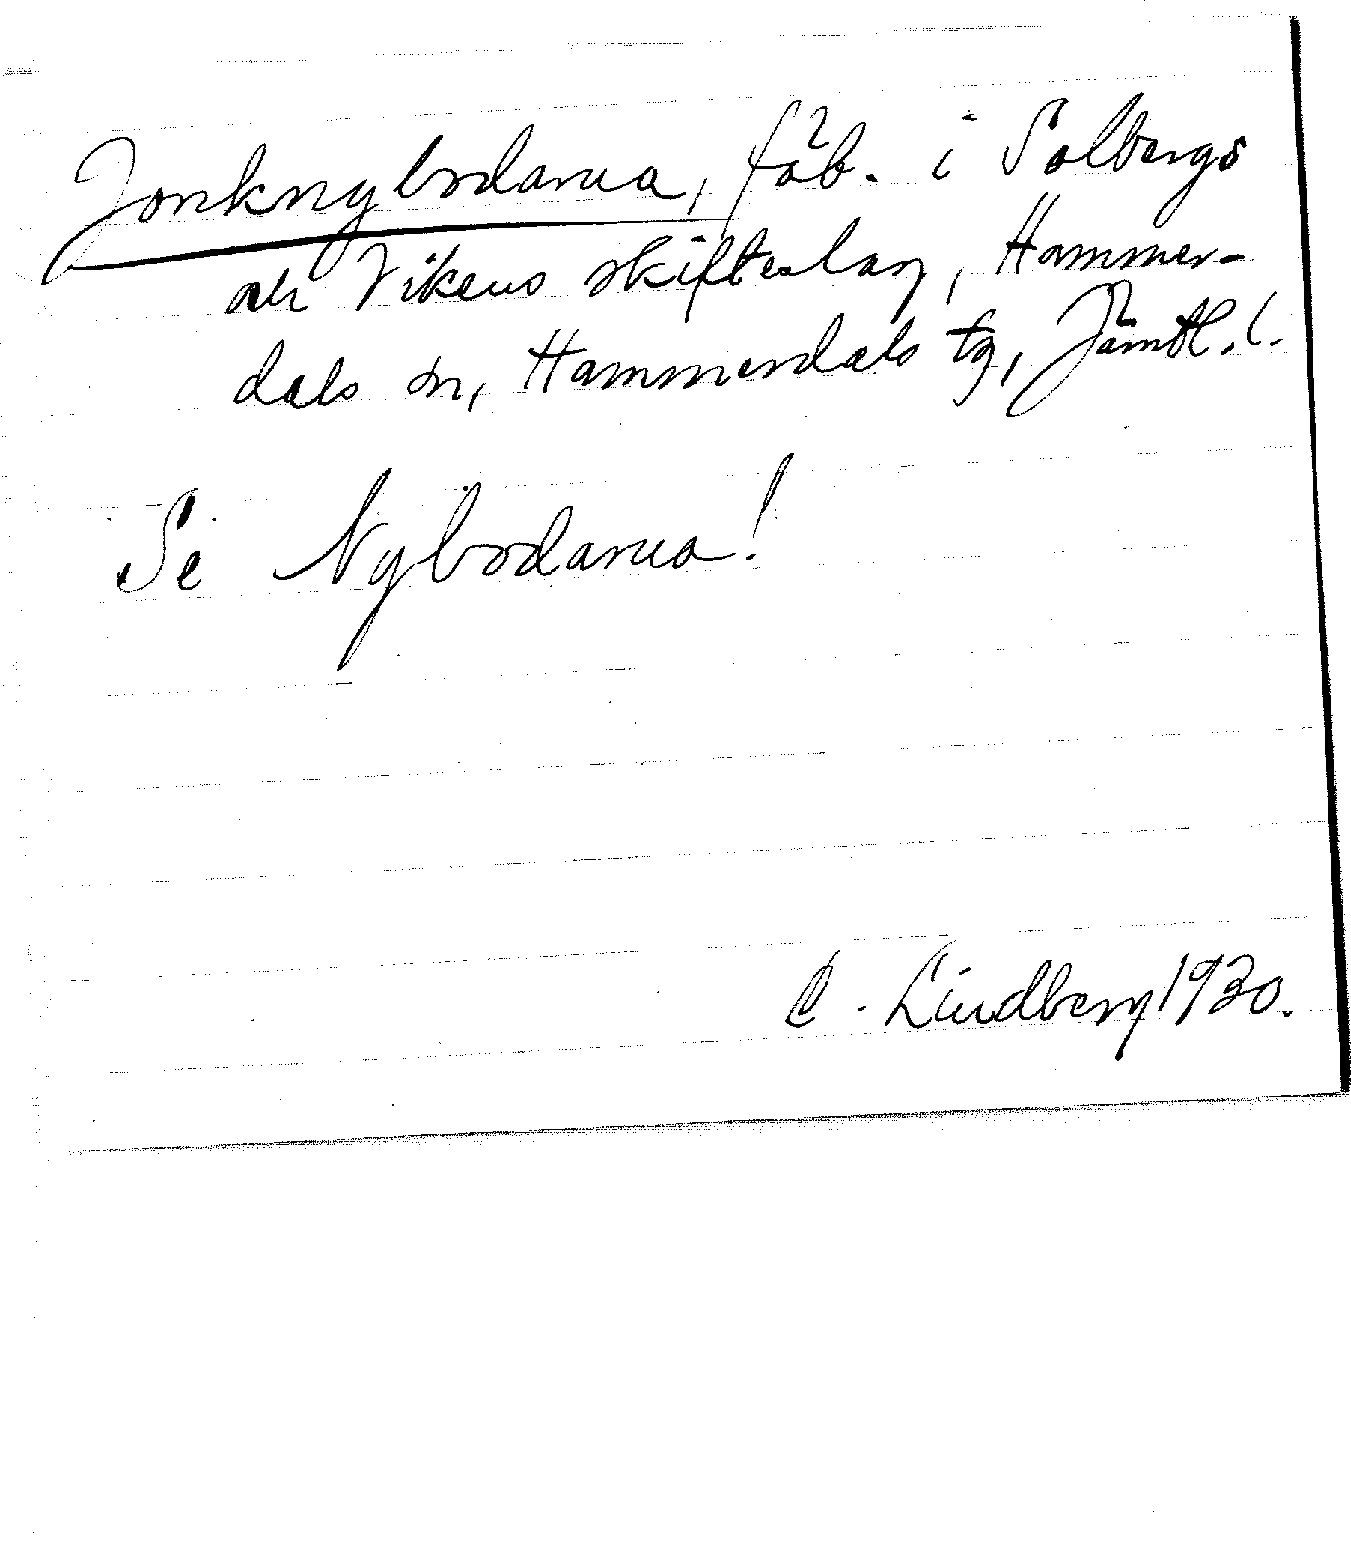 Jonknybodarna, fäb. i Solbergs
och Vikens skifteslag, Hammer-
dals sn, Hammerdals tg, Jämtl. l.
Se Nybodarna!
C. Lindberg 1930.